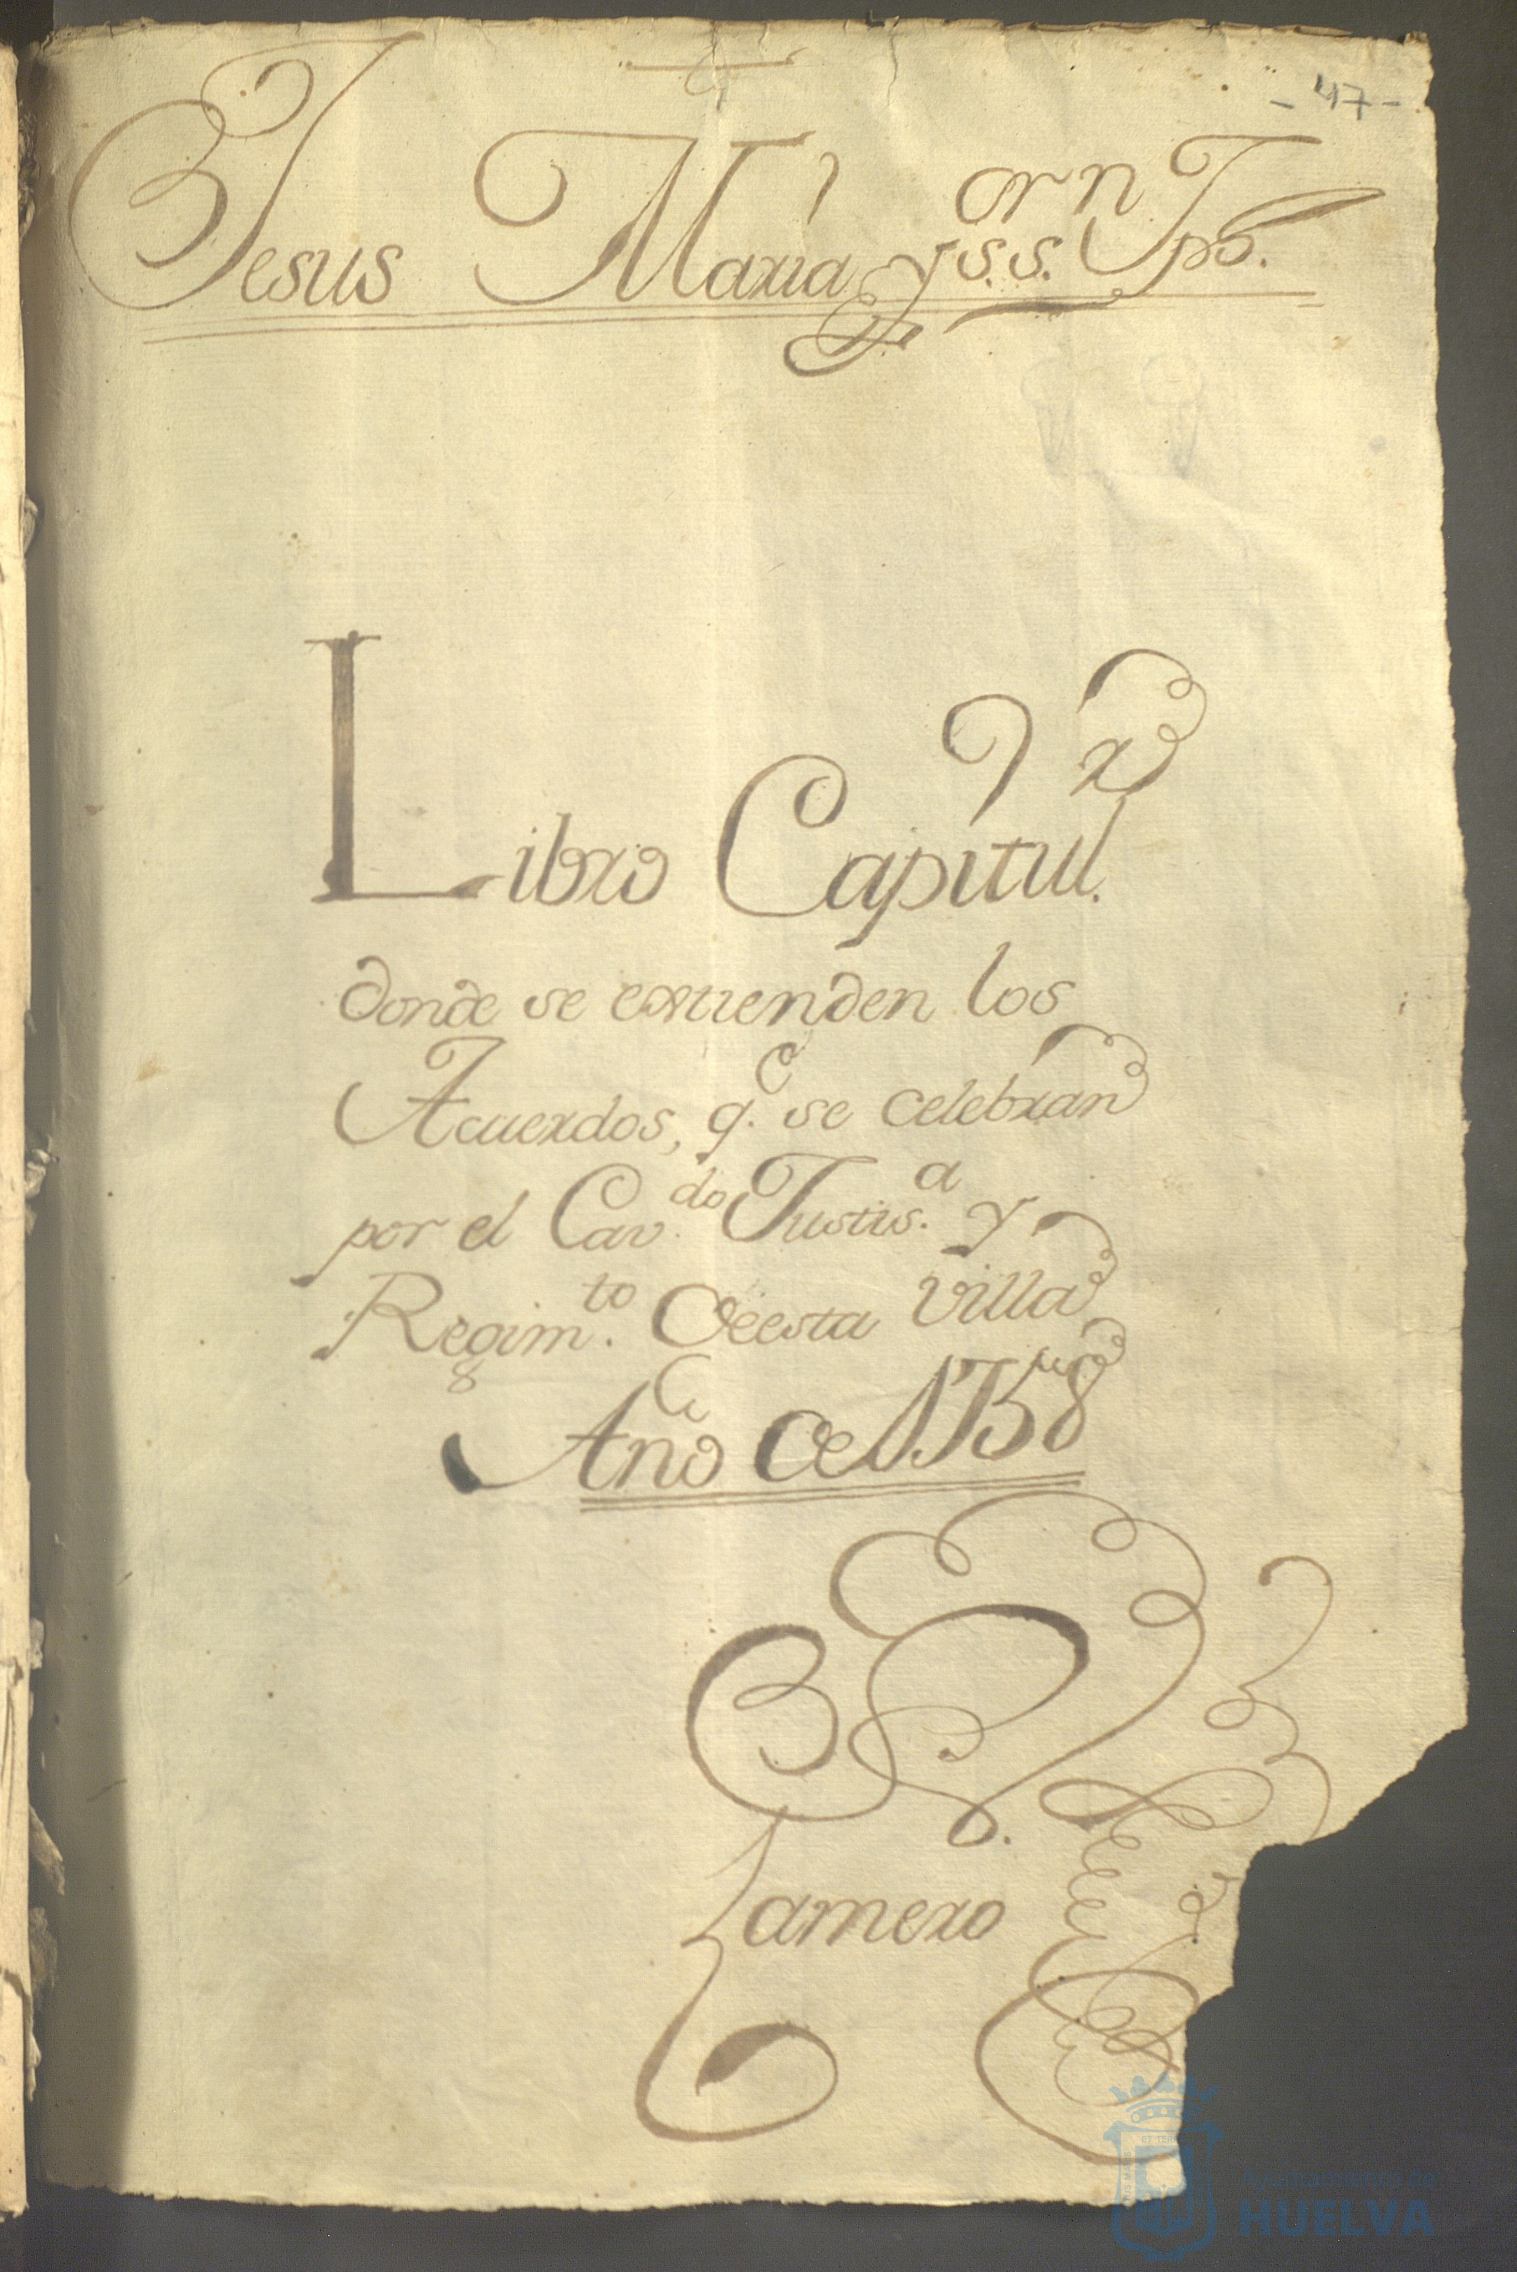 - 47 -
Jesus Maria y s.s. Jph.
Libro Capitul.r
donde se extienden los
Acuerdos, q.e se celebran
por el Cav.do Justis.a y
Regim.to de esta Villa
Año de 1758
Lamero
Ayuntamiento de
HUELVA